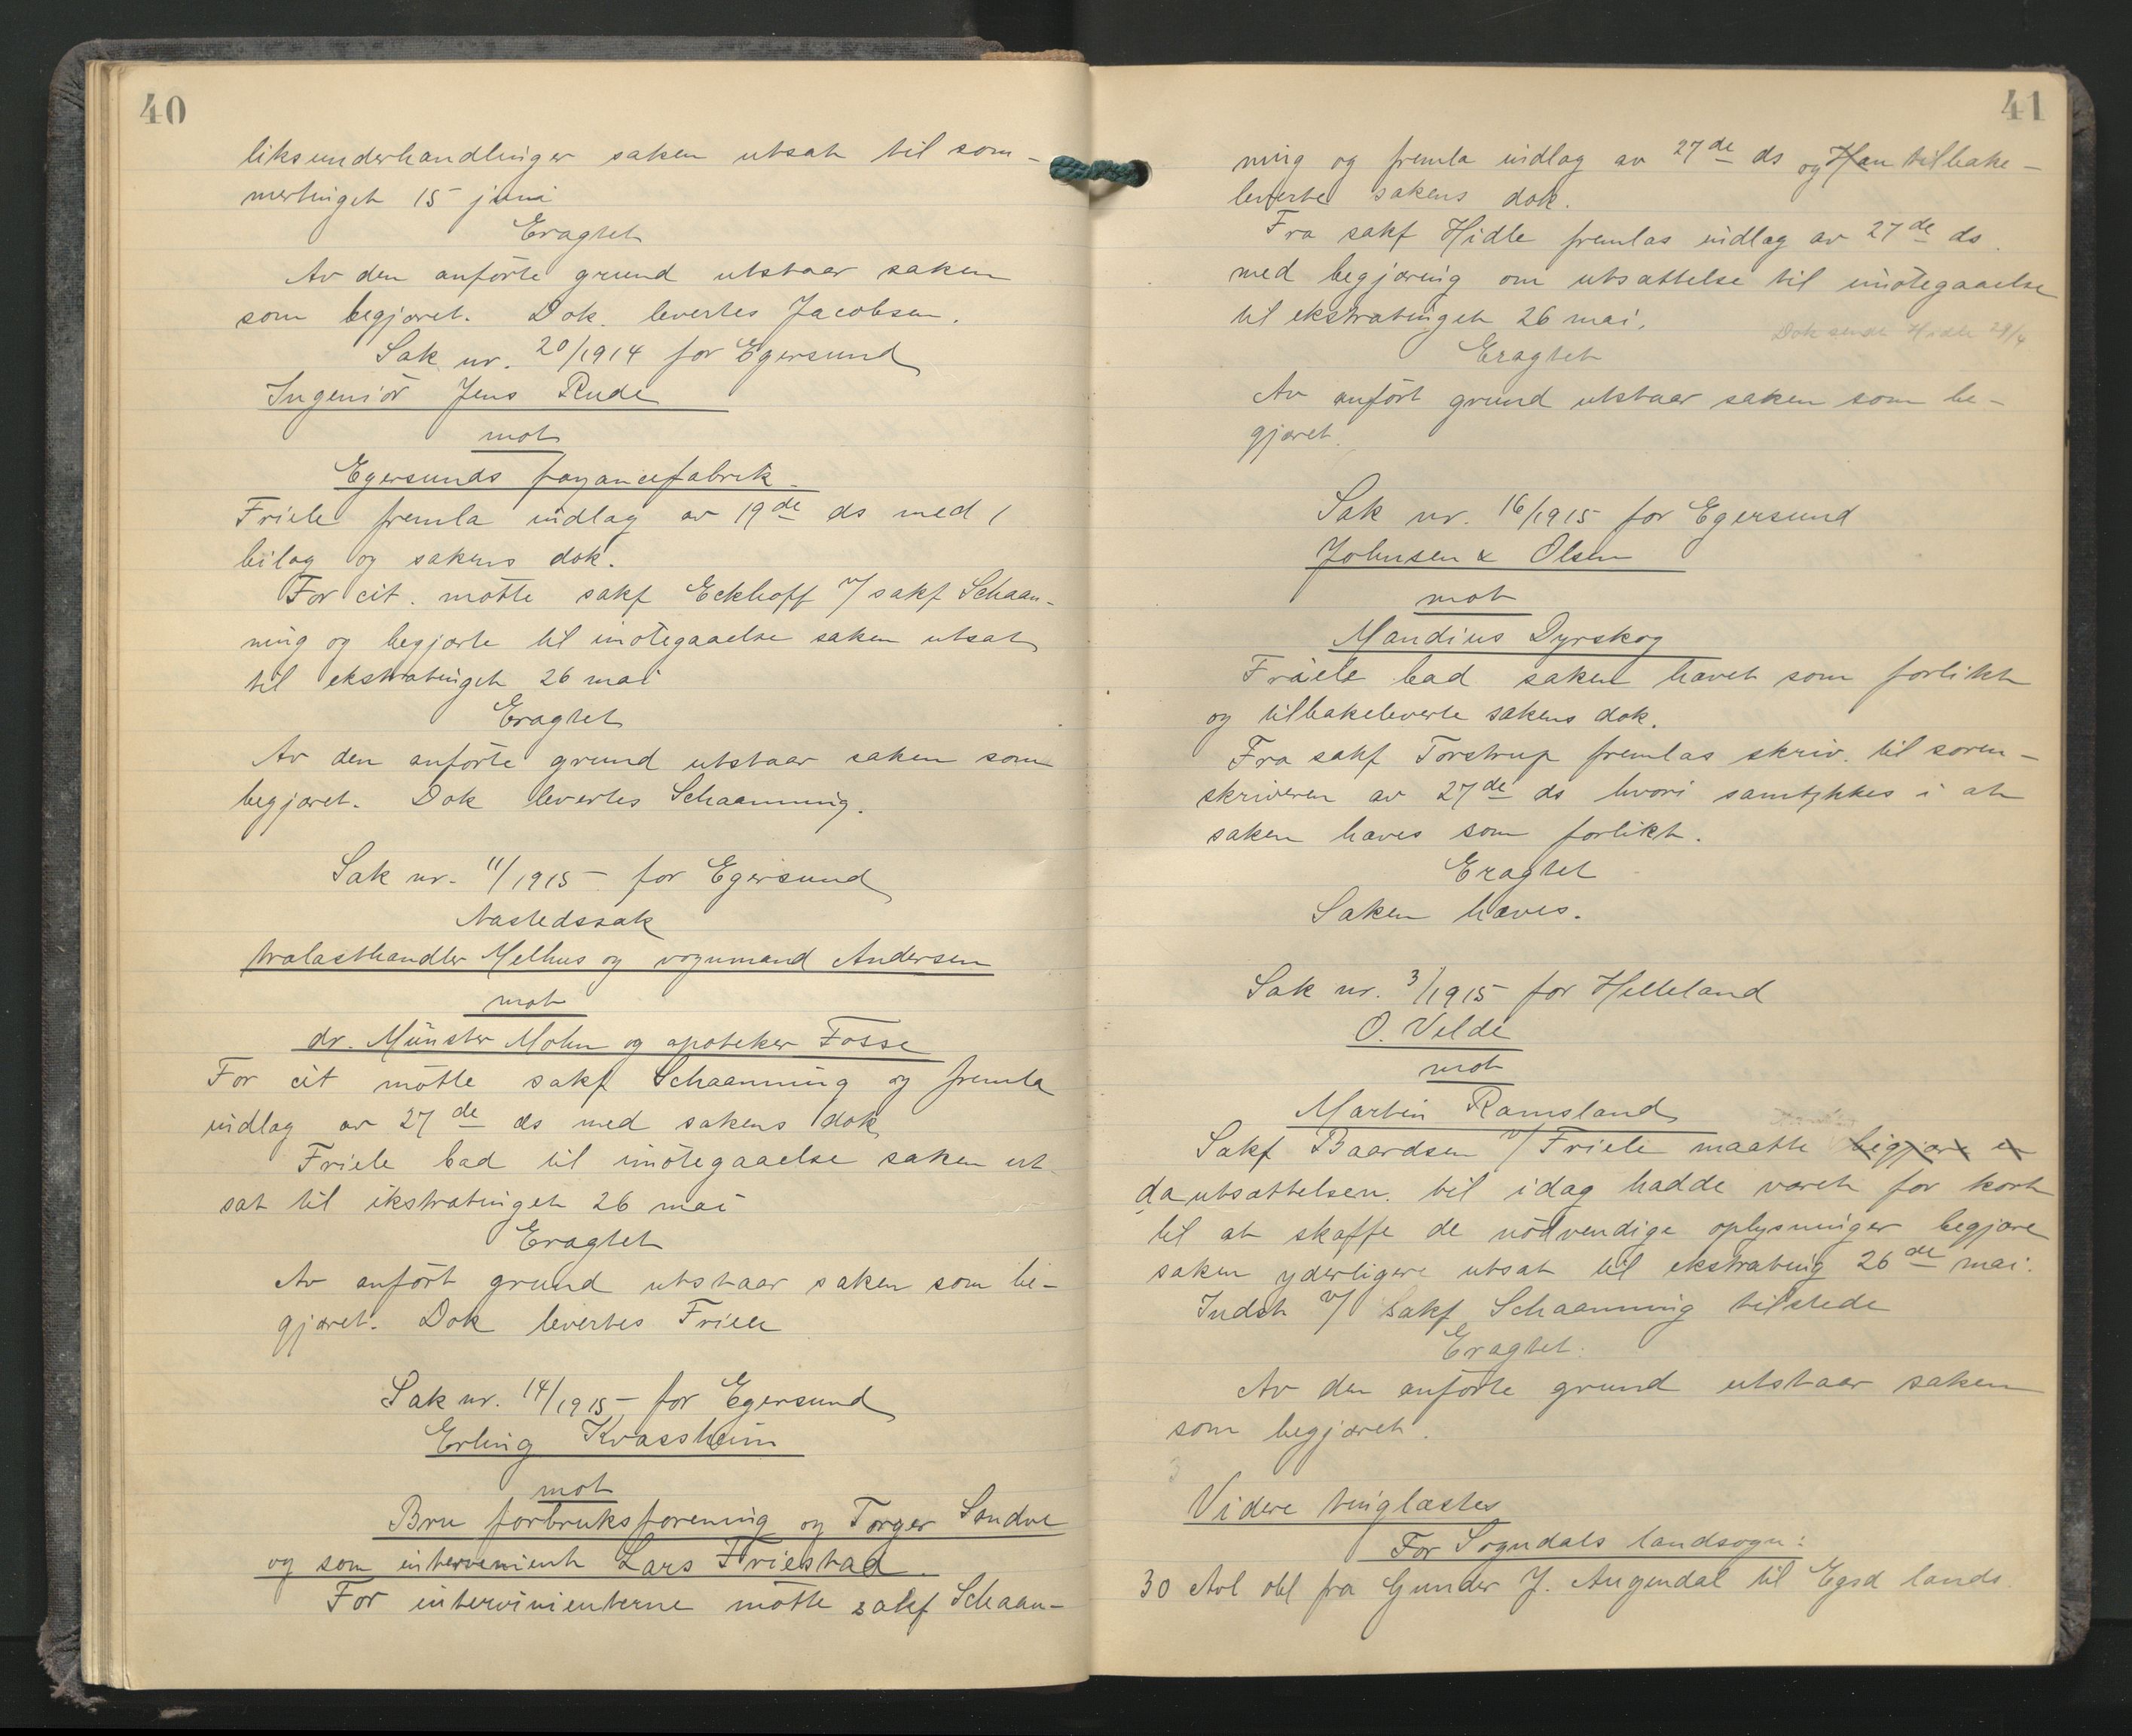 40
liksunderhandlinger saken utsat til som-
mertinget 15 juni
Eragtet
Av den anförte grund utstaar saken
som begjæret. Dok. levertes Jacobsen.
Sak nr. 20/1914 for Egersund
Ingeniör Jens Rude
mot
Egersunds fayancefabrik
Friele fremla indlag av 19de ds med 1
bilag og sakens dok.
For cit. mötte sakf Eckhoff v/ sakf Schaan-
ning og begjærte til imötegaaelse saken utsat
til ekstratinget 26 mai
Eragtet
Av den anförte grund utstaar saken som
begjæret. Dok levertes Schaanning.
Sak nr. 11/1915 for Egersund
Navstedssak
trælasthandler Melhus og vognmand Andersen
mot
dr. Münster Mohn og apoteker Fosse
For cit mötte sakf Schaanning og fremla
indlag av 27de ds med sakens dok
Friele bad til imötegaaelse saken ut
sat til ekstratinget 26 mai
Eragtet
Av anfört grund utstaar saken som be-
gjæret. Dok levertes Friele
Sak nr. 14/1915 for Egersund
Erling Kvassheim
mot
Bru forbruksforening og Torger Sandve
og som intervenient Lars Friestad.
For intervinienterne mötte sakf Schaan-
41
ning og fremla indlag av 27de ds og Han tilbake-
leverte sakens dok.
Fra sakf Hidle fremlas indlag av 27de ds.
med begjæring om utsættelse til imötegaaelse
til ekstratinget 26 mai.
Dok sendt Hidle 29/4
Eragtet
Av anfört grund utstaar saken som be-
gjæret.
Sak nr. 16/1915 for Egersund
Johnsen & Olsen
mot
Mandius Dyrskog
Friele bad saken hævet som forlikt
og tilbakeleverte sakens dok.
Fra sakf Torstrup fremlas skriv. til soren-
skriveren av 27de ds hvori samtykkes i at
saken hæves som forlikt.
Eragtet
Saken hæves.
Sak nr. 3/1915 for Helleland
O. Velde
mot
Martin Ramsland
Sakf Baardsen v/ Friele maatte begjære en
da utsættelsen til idag hadde været for kort
til at skaffe de nödvendige oplysninger begjære
saken yderligere utsat til ekstrating 26de mai.
Indst v/ sakf Schaanning tilstede
Eragtet.
Av den anförte grund utstaar saken
som begjæret.
3
Videre tinglæstes
For Sogndals landsogn:
30 Avl obl fra Gunder J. Augendal til Egsd lands.